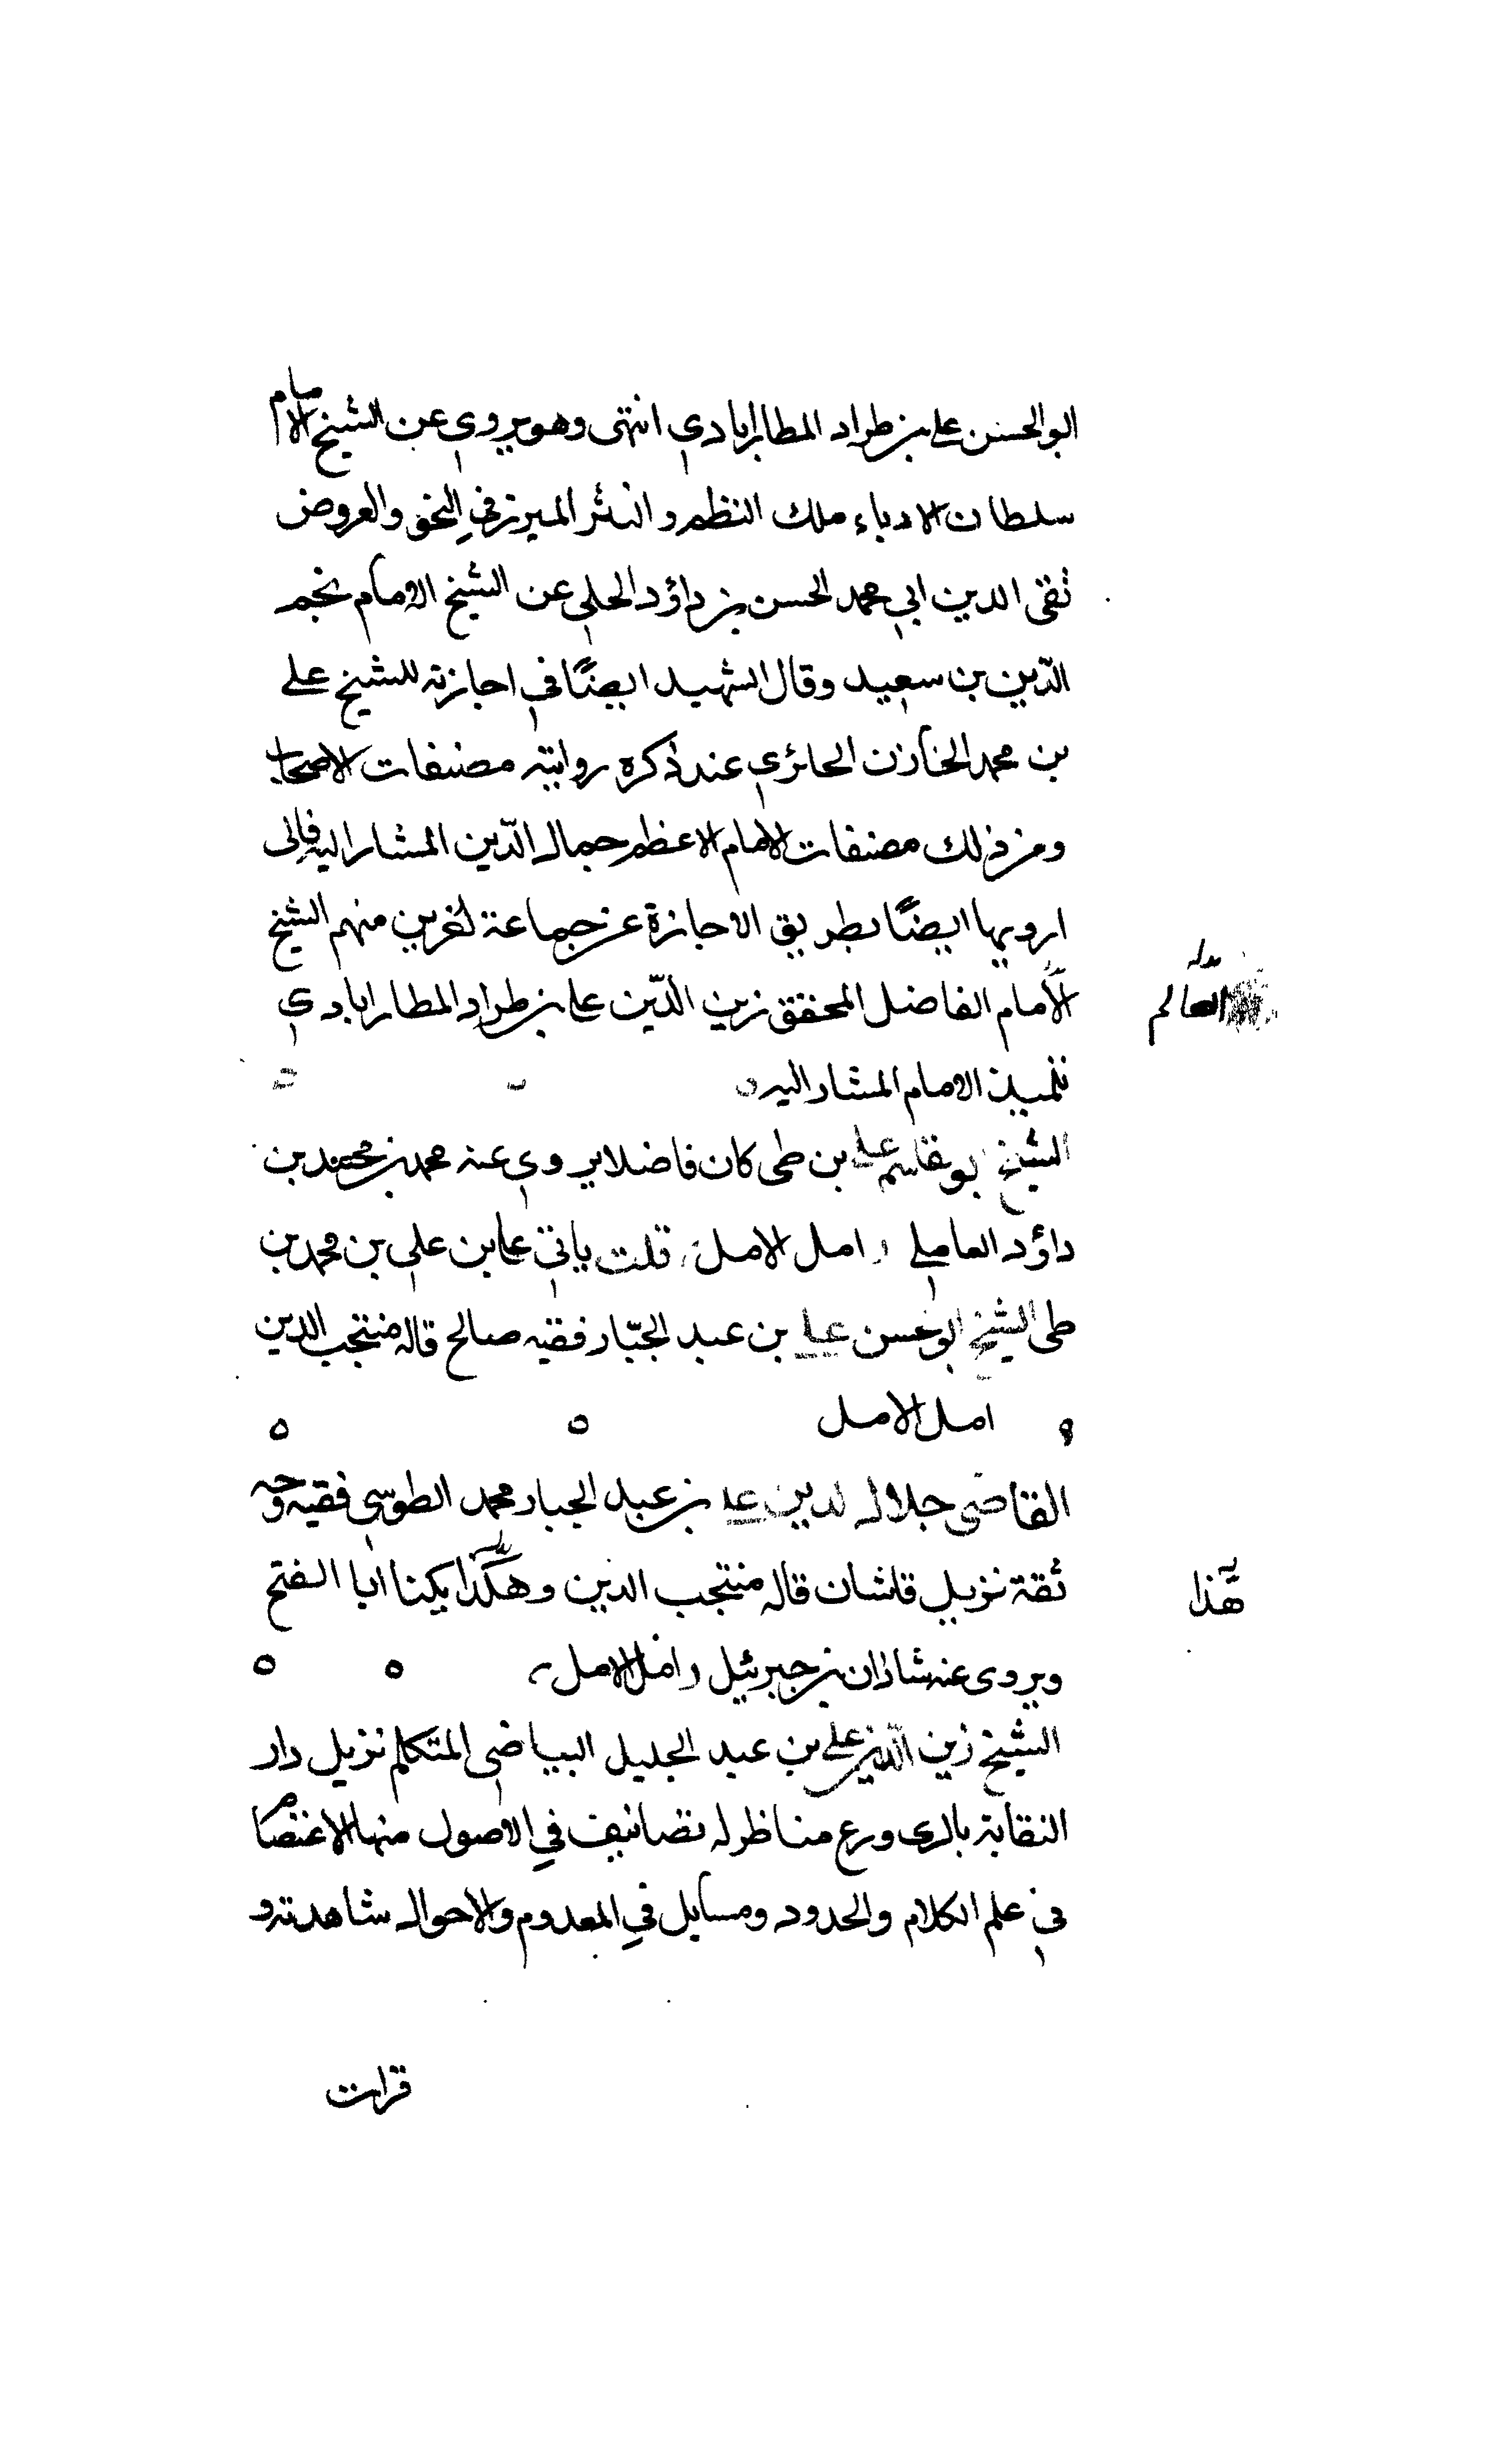 ابو الحسن علي بن طراد المطارابادي انتهى وهو يروي عن الشيخ الامام
سلطان الادباء ملك النظم و النثر المبرز في النحو والعروض
تقي الدين ابي محمد الحسن بن داؤد الحلي عن الشيخ الامام نجم
الدّين بن سعيد وقال الشهيد ايضًا في اجازته للشيخ علي
بن محمد الخازن الحائري عند ذكره روايته مصنفات الاصحاب
ومن ذلك مصنفات الامام الاعظم جمال الدّين المشار اليه فاني
ارويها ايضًا بطريق الاجازة عن جماعة اخرين منهم الشيخ
الامام الفاضل المحقق زين الدّين علي بن طراد المطارابادي
العالم
تلميذ الامام المشار اليه
الشيخ ابو القاسم علي بن طي كان فاضلا يروي عنه محمد بن محمد بن
داؤد العاملي امل الامل قلت ياتي علي بن علي بن محمد بن
طي الشيخ ابو الحسن علي بن عبد الجبّار فقيه صالح قاله منتجب الدين
امل الامل
القاضي جلال الدين علي بن عبد الجبار محمد الطوسي فقيه وجه
ثقة نزيل قاشان قاله منتجب الدين وهكذا يكنا ابا الفتح
هذا
ويروي عنه شاذان بن جبرئيل امل الامل
الشيخ زين الدين علي بن عبد الجليل البياضي المتكلم نزيل دار
النقابة بالري ورع مناظر له تصانيف في الاصول منها الاعتصام
في علم الكلام والحدود ومسايل في المعدوم والاحوال شاهدته و
قرات